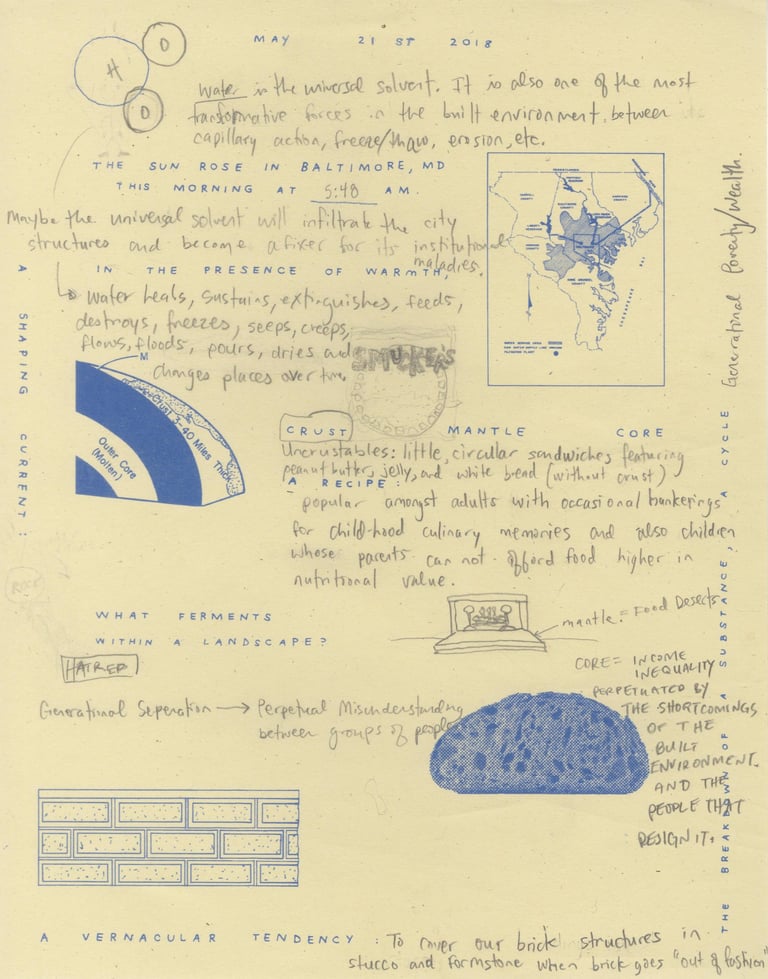 MAY 21ST 2018
H
O
O
Water is the universal solvent. It is also one of the most
transformative forces in the built environment, between its
capillary action, freeze/thaw, erosion, etc.
THE SUN ROSE IN BALTIMORE, MD
THIS MORNING AT 5:48 AM.
Maybe the universal solvent will infiltrate the city
structures and become a fixer for its institutional
maladies.
IN THE PRESENCE OF WARMTH,
Water heals, sustains, extinguishes, feeds,
destroys, freezes, seeps, creeps,
flows, floods, pours, dries and
changes places over time.
SMUCKER'S
M
Crust 3-40 Miles Thick
Outer Core
(Molten)
A SHAPING CURRENT:
CRUST MANTLE CORE
Uncrustables: little, circular sandwiches featuring
peanut butter, jelly, and white bread (without crust)
A RECIPE:
popular amongst adults with occasional hankerings
for childhood culinary memories and also children
whose parents can not afford food higher in
nutritional value.
WHAT FERMENTS
WITHIN A LANDSCAPE?
HATRED
mantle = Food Deserts
Generational Seperation → Perpetual Misunderstanding
between groups of people
CORE = INCOME
INEQUALITY
PERPETUATED BY
THE SHORTCOMINGS
OF THE
BUILT
ENVIRONMENT.
AND THE
PEOPLE THAT
DESIGN IT.
THE BREAKDOWN OF A SUBSTANCE, A CYCLE Generational Poverty/Wealth.
A VERNACULAR TENDENCY: To cover our brick structures in
stucco and formstone when brick goes "out of fashion"